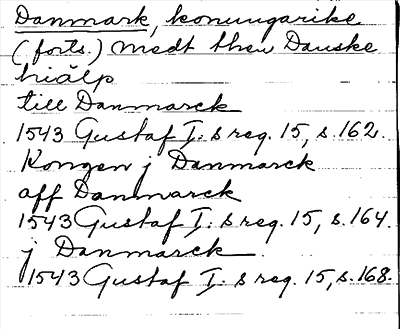 Danmark, konungarike
(forts.) medt then Danske
hiälp
till Danmarck
1543 Gustaf I:s reg. 15, s. 162.
Kongen j Danmarck
aff Danmarck
1543 Gustaf I:s reg. 15, s. 164.
j Danmarck
1543 Gustaf I:s reg. 15, s. 168.